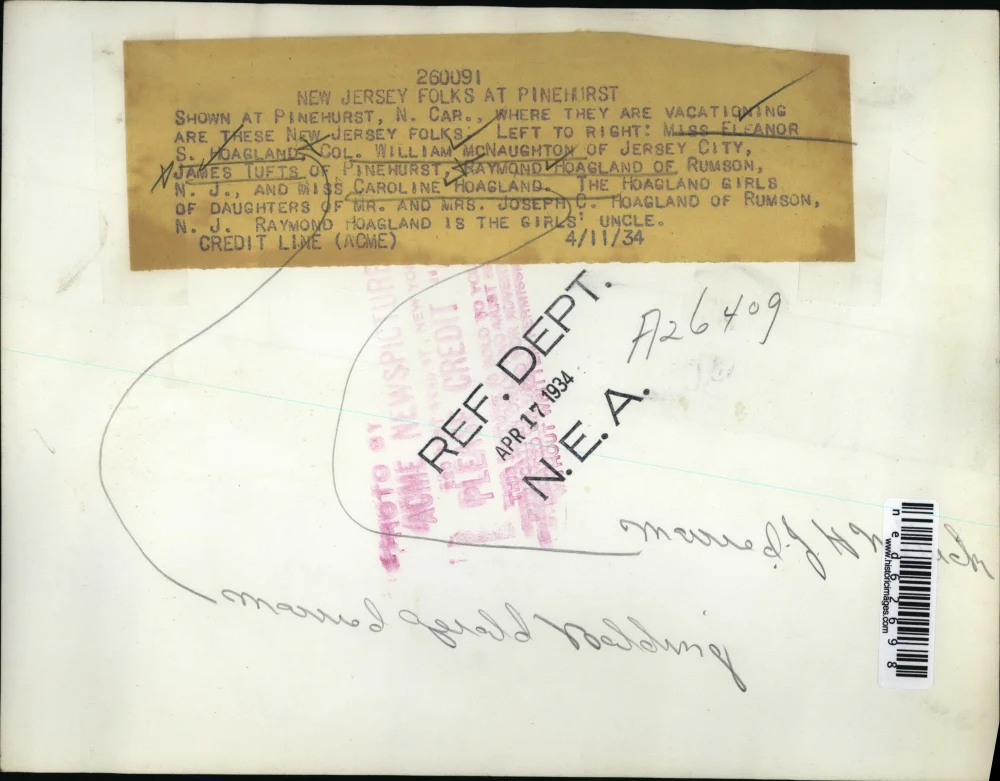 260091
NEW JERSEY FOLKS AT PINEHURST
SHOWN AT PINEHURST, N. CAR., WHERE THEY ARE VACATIONING
ARE THESE NEW JERSEY FOLKS: LEFT TO RIGHT: MISS ELEANOR
S. HOAGLAND, COL. WILLIAM MCNAUGHTON OF JERSEY CITY,
JAMES TUFTS OF PINEHURST, RAYMOND HOAGLAND OF RUMSON,
N. J., AND MISS CAROLINE HOAGLAND. THE HOAGLAND GIRLS
OF DAUGHTERS OF MR. AND MRS. JOSEPH C. HOAGLAND OF RUMSON,
N. J. RAYMOND HOAGLAND IS THE GIRLS' UNCLE.
CREDIT LINE (ACME) 4/11/34
PHOTO BY
ACME NEWSPICTURE
CREDIT
REF. DEPT.
APR 17 1934
N. E. A.
A26409
married J. H
married Gerald
www.historicimages.com
ned62698